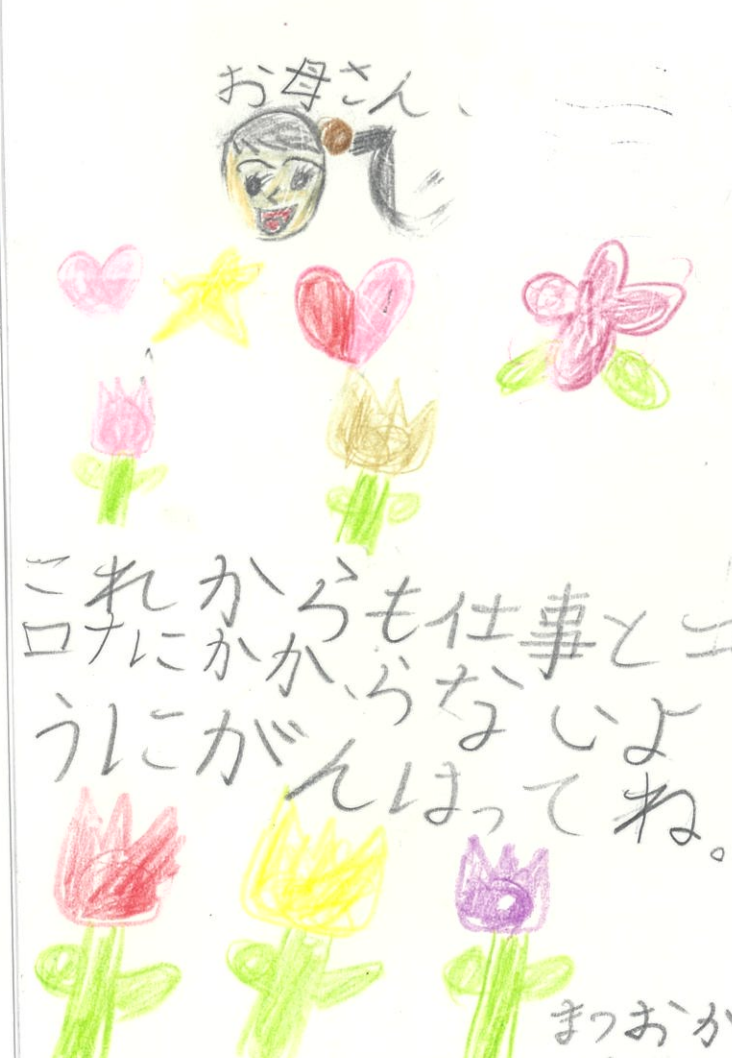 お母さん、
これからも仕事とコ
ロナにかからないよ
うにがんはってね。
まつおか